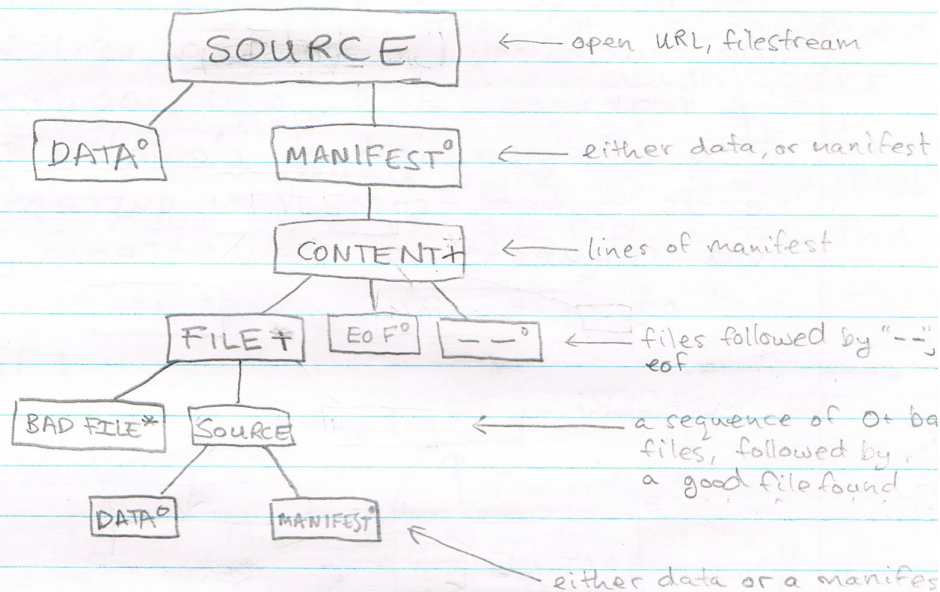 SOURCE ← open URL, filestream
DATA° MANIFEST° ← either data, or manifest
CONTENT+ ← lines of manifest
FILE+ EOF° --° ← files followed by "--",
eof
BAD FILE* SOURCE ← a sequence of 0+ ba
files, followed by
a good file found
DATA° MANIFEST°
either data or a manifes